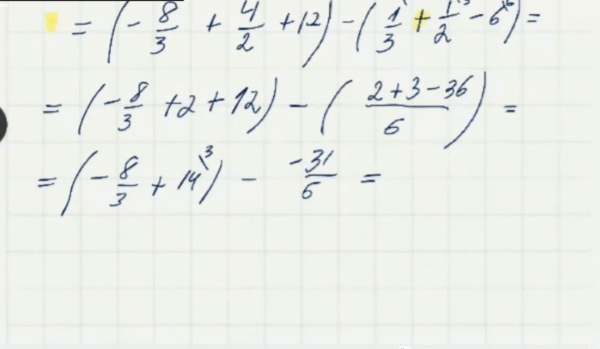 = (-8/3 + 4/2 + 12) - (1/3 + 1/2 - 6) =
= (-8/3 + 2 + 12) - (2+3-36/6) =
= (-8/3 + 14^3) - -31/6 =